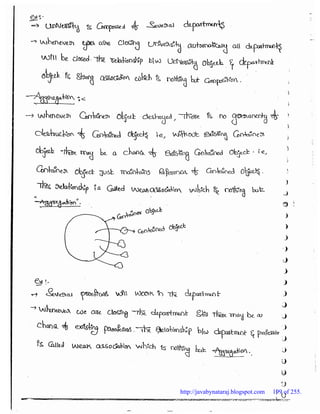 Ex:-
→ University is Composed of Several departments
→ whenever you are closing University automatically all departments
will be closed. The relationship b/w University object & department
object is Strong association which is nothing but Composition.
Aggregation :-
→ whenever Container object destroyed, There is no guaranty of
destruction of Contained objects i.e, without Existing Container
object There may be a chance of Existing Contained object. i.e,
Container object just maintains Reference of Contained objects.
This Relationship is Called weak association which is nothing but
"Aggregation".
Container object
Contained object
Ex:-
→ Several professors will work in The department
→ whenever we are closing The department Still There may be a
chance of existing professors. The relationship b/w department & professor
is Called weak association which is nothing but Aggregation.
http://javabynataraj.blogspot.com 109 of 255.